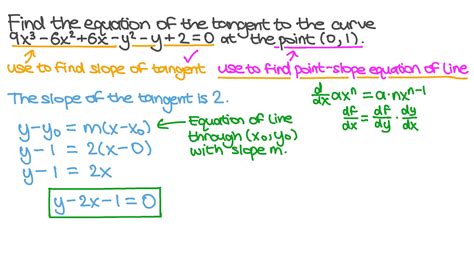 Find the equation of the tangent to the curve
9x³-6x²+6x-y²-y+2=0 at the point (0,1).
use to find slope of tangent use to find point-slope equation of line
The slope of the tangent is 2.
d/dx axⁿ = a·nxⁿ⁻¹
df/dx = df/dy · dy/dx
y-y₀ = m(x-x₀)
Equation of line
through (x₀,y₀)
with slope m.
y-1 = 2(x-0)
y-1 = 2x
y-2x-1=0